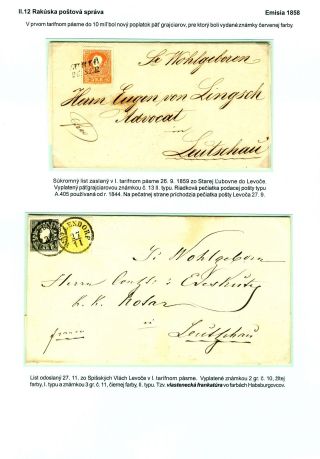 II.12 Rakúska poštová správa
Emisia 1858
V prvom tarifnom pásme do 10 míľ bol nový poplatok päť grajciarov, pre ktorý boli vydané známky červenej farby.
Sr Wohlgeboren
Herrn Eugen von Lingsch
Advocat
in
Leutschau
Súkromný list zaslaný v I. tarifnom pásme 26. 9. 1859 zo Starej Ľubovne do Levoče.
Vyplatený päťgrajciarovou známkou č. 13 II. typu. Riadková pečiatka podacej pošty typu
A 405 používaná od r. 1844. Na pečatnej strane príchodzia pečiatka pošty Levoča 27. 9.
27
11
Sr Wohlgeboren
Herrn
k. k. Notar
franco
in
Leutschau
List odoslaný 27. 11. zo Spišských Vlách Levoče v I. tarifnom pásme. Vyplatené známkou 2 gr. č. 10, žltej
farby, I. typu a známkou 3 gr. č. 11, čiernej farby, II. typu. Tzv. vlastenecká frankatúra vo farbách Habsburgovcov.